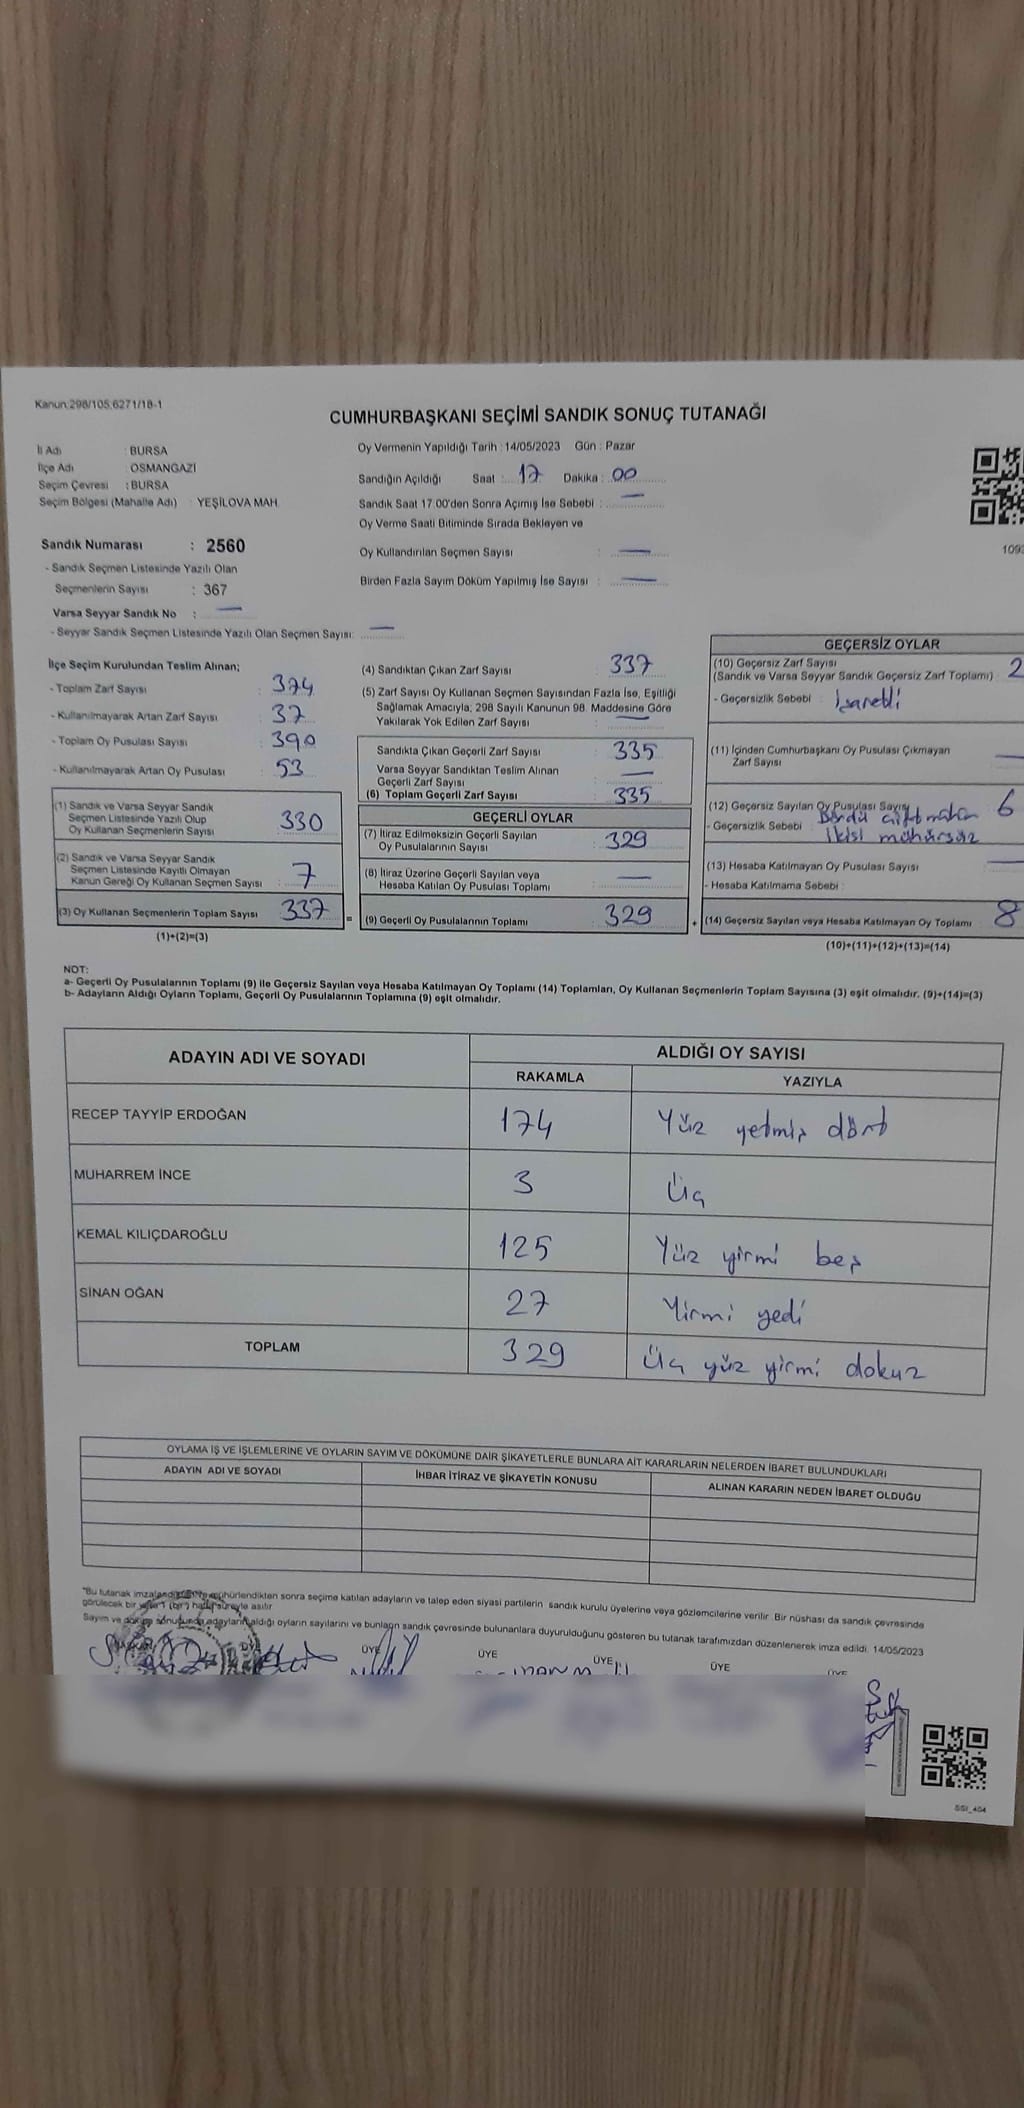 Kanun:298/105,6271/18-1
CUMHURBAŞKANI SEÇİMİ SANDIK SONUÇ TUTANAĞI
İl Adı : BURSA
İlçe Adı : OSMANGAZİ
Seçim Çevresi : BURSA
Seçim Bölgesi (Mahalle Adı) : YEŞİLOVA MAH.
Oy Vermenin Yapıldığı Tarih : 14/05/2023 Gün : Pazar
Sandığın Açıldığı Saat : 17 Dakika : 00
Sandık Saat 17.00'den Sonra Açımış İse Sebebi : —
Oy Verme Saati Bitiminde Sırada Bekleyen ve
Oy Kullandırılan Seçmen Sayısı : —
Birden Fazla Sayım Döküm Yapılmış İse Sayısı : —
1093
Sandık Numarası : 2560
- Sandık Seçmen Listesinde Yazılı Olan
Seçmenlerin Sayısı : 367
Varsa Seyyar Sandık No : —
- Seyyar Sandık Seçmen Listesinde Yazılı Olan Seçmen Sayısı: —
İlçe Seçim Kurulundan Teslim Alınan;
- Toplam Zarf Sayısı : 374
- Kullanılmayarak Artan Zarf Sayısı : 37
- Toplam Oy Pusulası Sayısı : 390
- Kullanılmayarak Artan Oy Pusulası : 53
(1) Sandık ve Varsa Seyyar Sandık
Seçmen Listesinde Yazılı Olup
Oy Kullanan Seçmenlerin Sayısı : 330
(2) Sandık ve Varsa Seyyar Sandık
Seçmen Listesinde Kayıtlı Olmayan
Kanun Gereği Oy Kullanan Seçmen Sayısı : 7
(3) Oy Kullanan Seçmenlerin Toplam Sayısı : 337
(1)+(2)=(3)
(4) Sandıktan Çıkan Zarf Sayısı : 337
(5) Zarf Sayısı Oy Kullanan Seçmen Sayısından Fazla İse, Eşitliği
Sağlamak Amacıyla; 298 Sayılı Kanunun 98. Maddesine Göre
Yakılarak Yok Edilen Zarf Sayısı : —
Sandıkta Çıkan Geçerli Zarf Sayısı : 335
Varsa Seyyar Sandıktan Teslim Alınan
Geçerli Zarf Sayısı : —
(6) Toplam Geçerli Zarf Sayısı : 335
GEÇERLİ OYLAR
(7) İtiraz Edilmeksizin Geçerli Sayılan
Oy Pusulalarının Sayısı : 329
(8) İtiraz Üzerine Geçerli Sayılan veya
Hesaba Katılan Oy Pusulası Toplamı : —
= (9) Geçerli Oy Pusulalarının Toplamı : 329
GEÇERSİZ OYLAR
(10) Geçersiz Zarf Sayısı
(Sandık ve Varsa Seyyar Sandık Geçersiz Zarf Toplamı) : 2
- Geçersizlik Sebebi : İşaretli
(11) İçinden Cumhurbaşkanı Oy Pusulası Çıkmayan
Zarf Sayısı —
(12) Geçersiz Sayılan Oy Pusulası Sayısı 6
- Geçersizlik Sebebi : Dördü çift mühür
İkisi mühürsüz
(13) Hesaba Katılmayan Oy Pusulası Sayısı —
- Hesaba Katılmama Sebebi :
+ (14) Geçersiz Sayılan veya Hesaba Katılmayan Oy Toplamı 8
(10)+(11)+(12)+(13)=(14)
NOT:
a- Geçerli Oy Pusulalarının Toplamı (9) ile Geçersiz Sayılan veya Hesaba Katılmayan Oy Toplamı (14) Toplamları, Oy Kullanan Seçmenlerin Toplam Sayısına (3) eşit olmalıdır. (9)+(14)=(3)
b- Adayların Aldığı Oyların Toplamı, Geçerli Oy Pusulalarının Toplamına (9) eşit olmalıdır.
ADAYIN ADI VE SOYADI ALDIĞI OY SAYISI
RAKAMLA YAZIYLA
RECEP TAYYİP ERDOĞAN 174 Yüz yetmiş dört
MUHARREM İNCE 3 Üç
KEMAL KILIÇDAROĞLU 125 Yüz yirmi beş
SİNAN OĞAN 27 Yirmi yedi
TOPLAM 329 Üç yüz yirmi dokuz
OYLAMA İŞ VE İŞLEMLERİNE VE OYLARIN SAYIM VE DÖKÜMÜNE DAİR ŞİKAYETLERLE BUNLARA AİT KARARLARIN NELERDEN İBARET BULUNDUKLARI
ADAYIN ADI VE SOYADI İHBAR İTİRAZ VE ŞİKAYETİN KONUSU ALINAN KARARIN NEDEN İBARET OLDUĞU
"Bu tutanak mühürlendikten sonra seçime katılan adayların ve talep eden siyasi partilerin sandık kurulu üyelerine veya gözlemcilerine verilir. Bir nüshası da sandık çevresinde
görülecek bir yere 1 (bir) hafta süreyle asılır.
Sayım ve döküm sonuçunda adayların aldığı oyların sayılarını ve bunların sandık çevresinde bulunanlara duyurulduğunu gösteren bu tutanak tarafımızdan düzenlenerek imza edildi. 14/05/2023
ÜYE ÜYE ÜYE ÜYE ÜYE
SSI_404